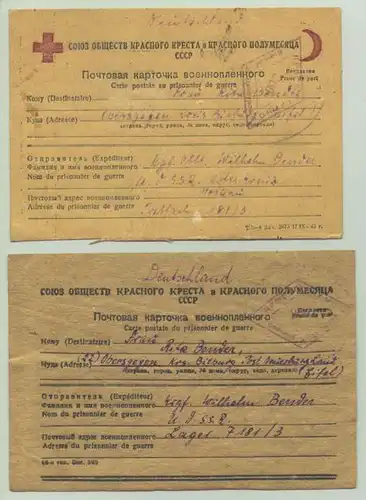 Deutschland
СОЮЗ ОБЩЕСТВ КРАСНОГО КРЕСТА и КРАСНОГО ПОЛУМЕСЯЦА
СССР
Почтовая карточка военнопленного
Carte postale du prisonnier de guerre
Бесплатно
Franc de port
Кому (Destinataire) Frau Rita Bender
Куда (Adresse)
Отправитель (Expéditeur) Wilhelm Bender
Фамилия и имя военнопленного
Nom du prisonnier de guerre U.d.S.S.R.
Почтовый адрес военнопленного
Adresse du prisonnier de guerre 7181/3
Deutschland
СОЮЗ ОБЩЕСТВ КРАСНОГО КРЕСТА и КРАСНОГО ПОЛУМЕСЯЦА
СССР
Почтовая карточка военнопленного
Carte postale du prisonnier de guerre
Бесплатно
Franc de port
Кому (Destinataire) Frau Rita Bender,
Куда (Adresse) (22) Oberszegen Krs. Bitburg
(Eifel)
Отправитель (Expéditeur) Wilhelm Bender
Фамилия и имя военнопленного
Nom du prisonnier de guerre U.d.S.S.R.
Почтовый адрес военнопленного Lager 7181/3
Adresse du prisonnier de guerre